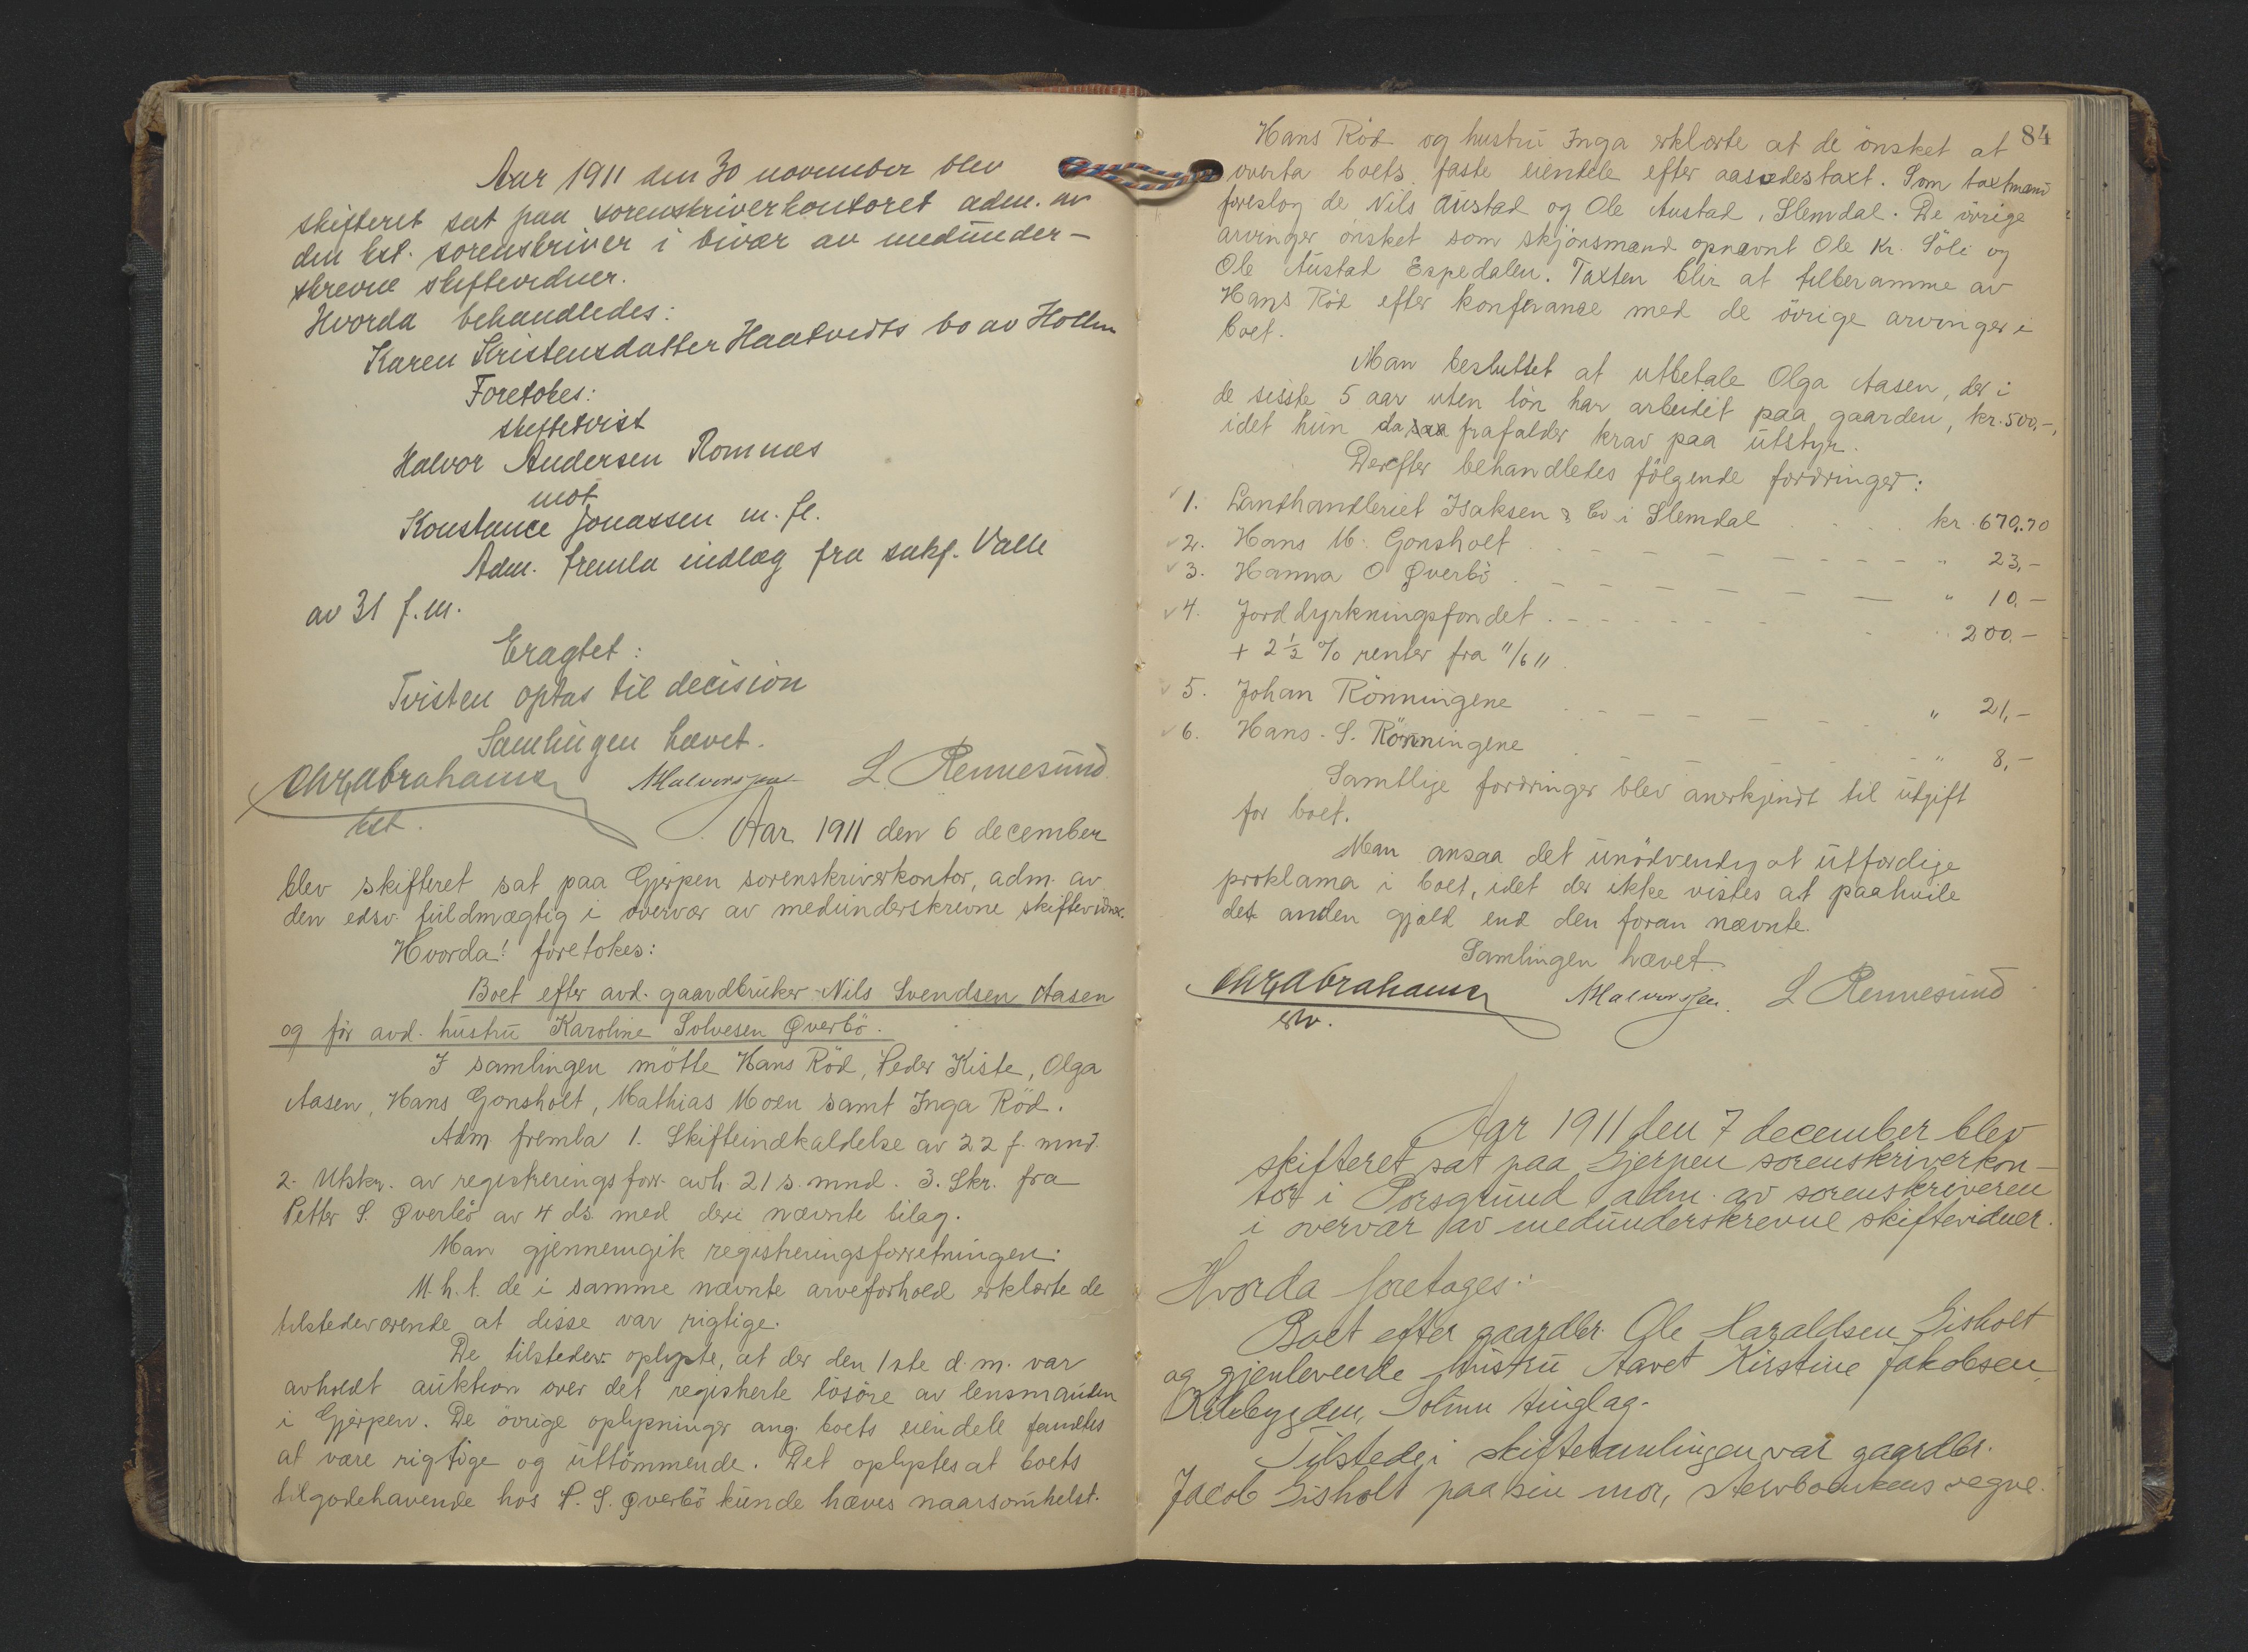 Aar 1911 den 30 november blev
skifteret sat paa sorenskriverkontoret adm. av
den kst. sorenskriver i bivær av medunder-
skrevne skiftevidner.
Hvorda behandledes:
Karen Kristensdatter Haatvedts bo av Hollen
Foretokes:
skiftetvist
Halvor Andersen Romnes
mot
Konstance Jonassen m. fl.
Adm. fremla indlæg fra sakf. Valle
av 31 f.m.
Eragtet:
Tvisten optas til decision
Samlingen hævet.
Chr. Abrahamsen Halvorsen L. Rennesund
kst.
Aar 1911 den 6 december
blev skifteret sat paa Gjerpen sorenskriverkontor, adm. av
den edsv. fuldmægtig i overvær av medunderskrevne skiftevidner.
Hvorda! foretokes:
Boet efter avd. gaardbruker Nils Svendsen Aasen
og før avd. hustru Karoline Solvesen Øverbö.
I samlingen mötte Hans Röd, Peder Kiste, Olga
Aasen, Hans Gonsholt, Mathias Moen samt Inga Röd.
Adm. fremla 1. Skifteindkaldelse av 22 f. mnd.
2. Utskr. av registreringsforr. avh. 21 s. mnd. 3. Skr. fra
Petter S. Øverbö av 4 ds. med deri nævnte bilag.
Man gjennemgik registreringsforretningen.
M.h.t. de i samme nævnte arveforhold erklærte de
tilstedeværende at disse var rigtige.
De tilstedev. oplyste, at der den 1ste d.m. var
avholdt auktion over det registrerte lösöre av lensmanden
i Gjerpen. De övrige oplysninger ang. boets eiendele fandtes
at være rigtige og uttömmende. Det oplystes at boets
tilgodehavende hos P. S. Øverbö kunde hæves naarsomhelst.
84
Hans Röd og hustru Inga erklærte at de önsket at
overta boets faste eiendele efter aasædestaxt. Som taxtmænd
foreslog de Nils Austad og Ole Austad, Slemdal. De övrige
arvinger önsket som skjönsmænd opnævnt Ole Kr. Söli og
Ole Austad Espedalen. Taxten blir at tilberamme av
Hans Röd efter konferanse med de övrige arvinger i
boet.
Man besluttet at utbetale Olga Aasen, der i
de sisste 5 aar uten lön har arbeidet paa gaarden, kr. 500,-,
idet hun da frafalder krav paa utstyr.
Derefter behandledes fölgende fordringer:
1. Landhandleriet Isaksen & Co i Slemdal kr. 670.70
2. Hans M. Gonsholt " 23,-
3. Hanna O Øverbö " 10.-
4. Jorddyrkningsfondet " 200.-
+ 2 1/2 % renter fra 11/6 11
5. Johan Rönningene " 21,-
6. Hans S. Rönningene " 8,-
Samtlige fordringer blev anerkjendt til utgift
for boet.
Man ansaa det unödvendig at utfærdige
proklama i boet, idet der ikke vistes at paahvile
det anden gjæld end den foran nævnte.
Samlingen hævet.
Chr. Abrahamsen Halvorsen L Rennesund
esv.
Aar 1911 den 7 december blev
skifteret sat paa Gjerpen sorenskriverkon-
tor i Porsgrund adm. av sorenskriveren
i overvær av medunderskrevne skiftevidner.
Hvorda foretages:
Boet efter gaardbr. Ole Haraldsen Gisholt
og gjenlevende hustru Aavet Kirstine Jakobsen,
Kilebygden, Solum tinglag.
Tilstede i skiftesamlingen var gaardbr.
Jacob Gisholt paa sin mor, sterboenkens vegne.